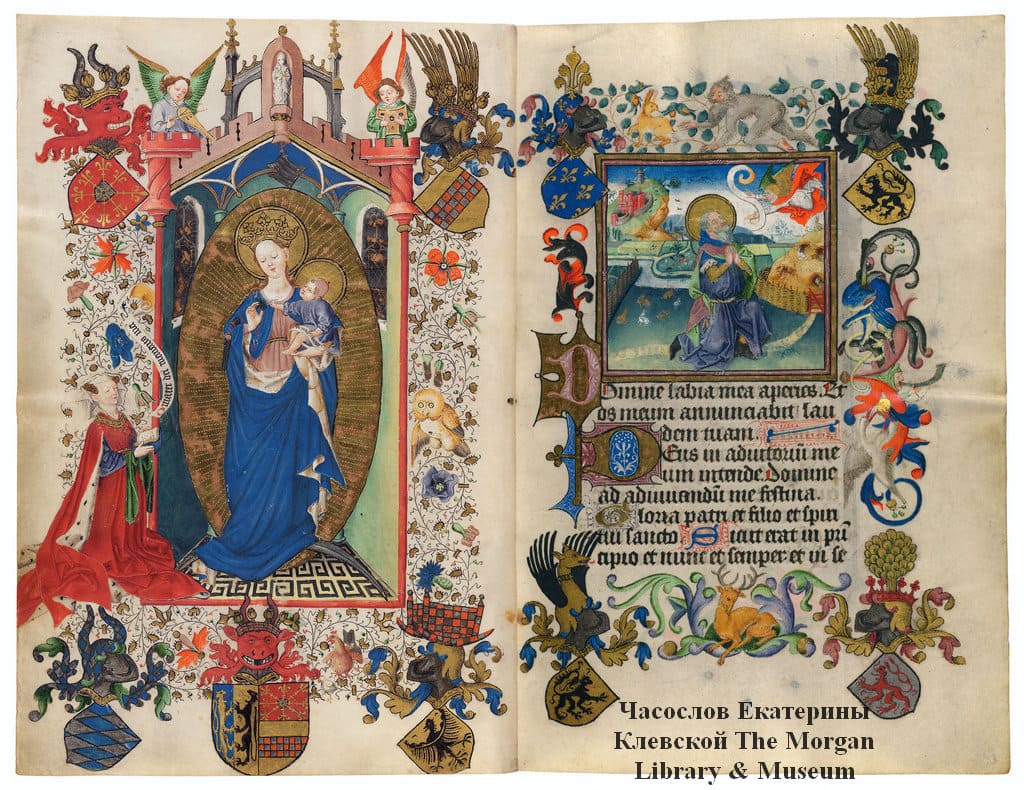 O mater dei memento mei
Domine labia mea aperies. Et
os meum annunciabit lau
dem tuam.
Deus in adiutoriū me
um intende. Domine
ad adiuuandū me festina.
Gloria patri et filio et spiri
tui sancto Sicut erat in prī
cipio et nunc et semper et in se
Часослов Екатерины
Клевской The Morgan
Library & Museum